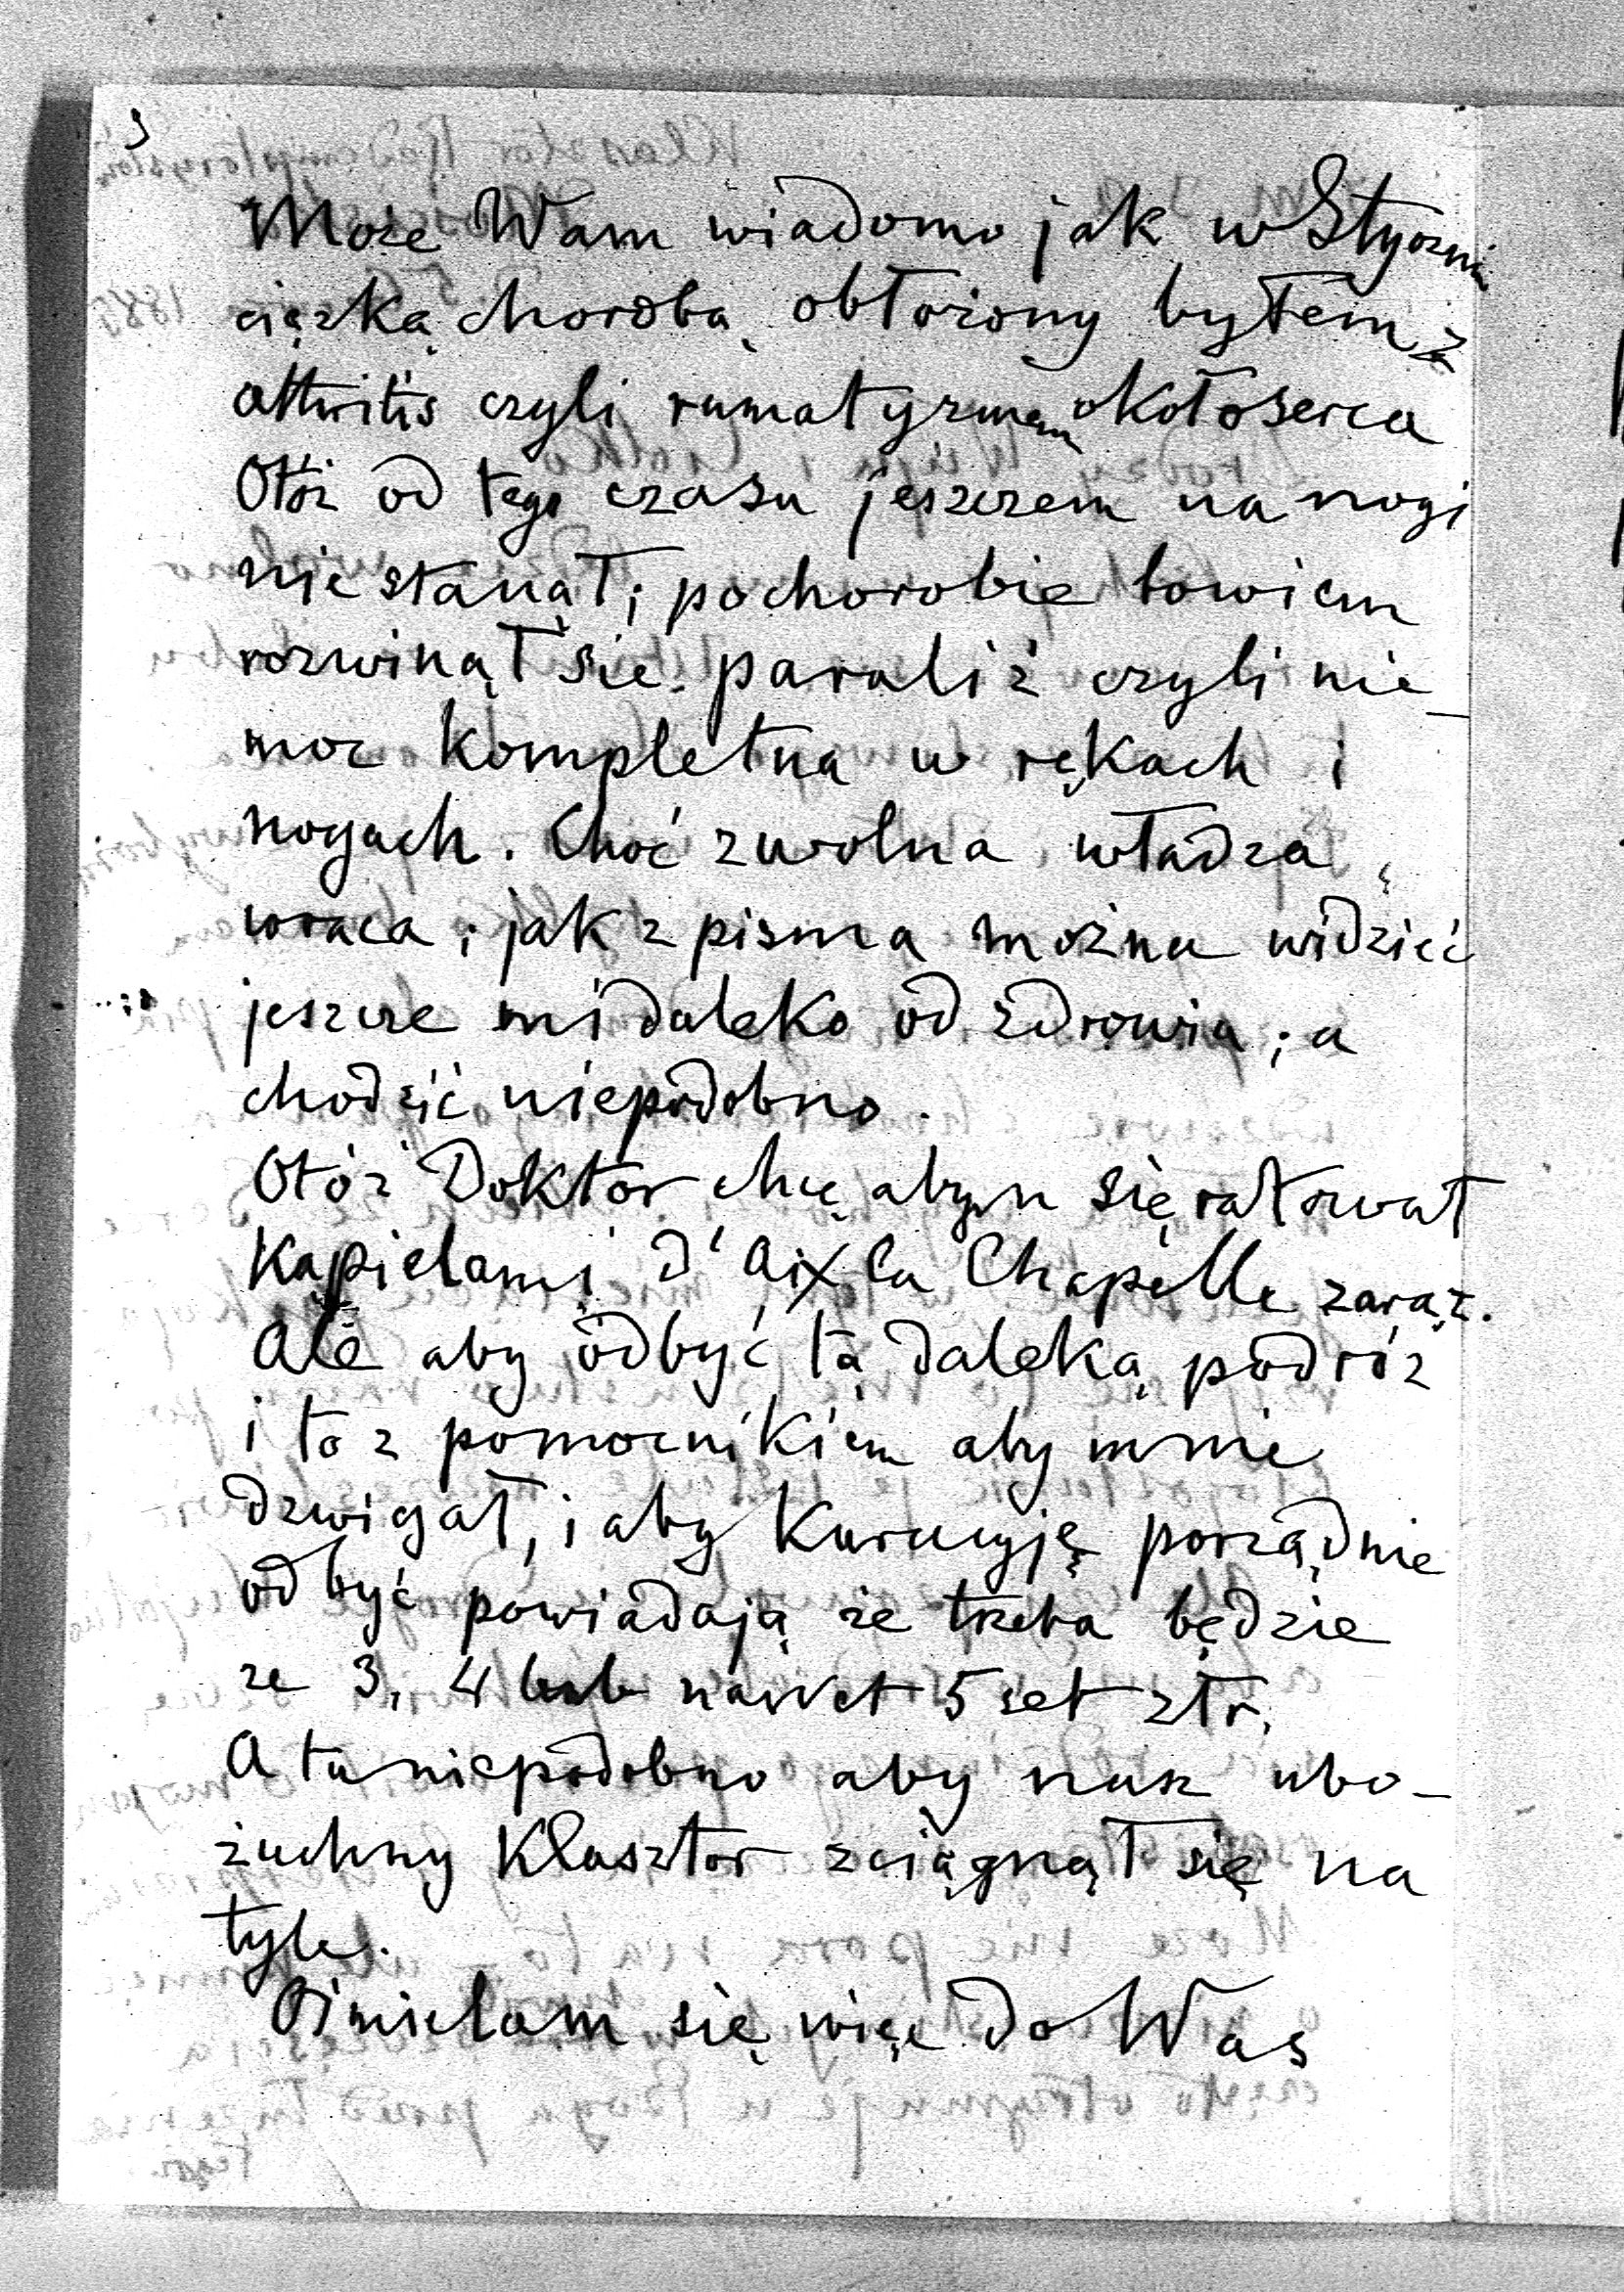 Może Wam wiadomo jak w Styczniu
ciężką chorobą obłożony byłem z
attritis czyli rumatyzmem około serca
Otóż od tego czasu jeszczem na nogi
nie stanął; po chorobie bowiem
rozwinął się paraliż czyli nie-
moc kompletna w rękach i
nogach. Choć zwolna władza
wraca; jak z pisma można widzieć
jeszcze mi daleko od zdrowia; a
chodzić niepodobno.
Otóż Doktor chcę abym się ratował
Kąpielami d'Aix la Chapelle zaraz.
Ale aby odbyć tą daleką podróż
i to z pomocnikiem aby mnie
dzwigał, i aby Kuracyję porządnie
odbyć powiadają że treba będzie
ze 3, 4 lub nawet 5 set złr.
A tu niepodobno aby nasz ubo-
żuchny Klasztor zciągnął się na
tyle.
Ośmielam się więc do Was